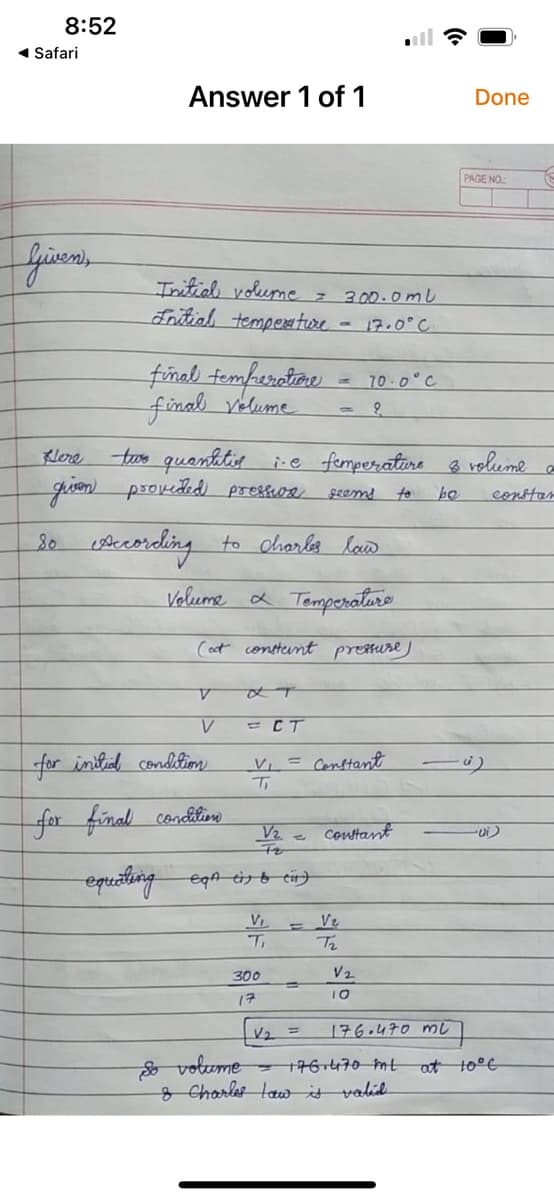 8:52
◀ Safari
Answer 1 of 1
Done
PAGE NO.:
Given,
Initial volume = 300.0 mL
Initial temperature = 17.0°C
final temperature = 10.0°C
final volume = ?
Here two quantities i.e temperature & volume a
given provided pressure seems to be constan
So According to Charles law
Volume α Temperature
(at constant pressure)
V α T
V = CT
for initial condition V₁/T₁ = Constant —(i)
for final condition V₂/T₂ = constant —(ii)
equating eqn (i) & (ii)
V₁/T₁ = V₂/T₂
300/17 = V₂/10
V₂ = 176.470 mL
So volume = 176.470 mL at 10°C
& Charles law is valid